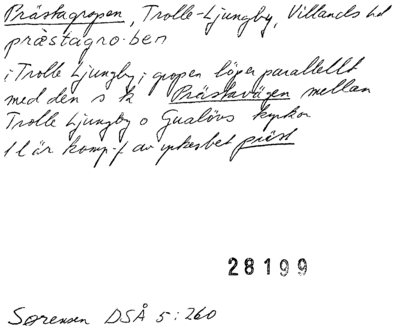 Prästagropen, Trolle-Ljungby, Villands hd
præstagro·ben
i Trolle Ljungby; gropen löper parallellt
med den s k Prästavägen mellan
Trolle Ljungby o Gualövs kyrkor
f l är komp-f av yrkesbet präst
28199
Sørensen DSÅ 5:260